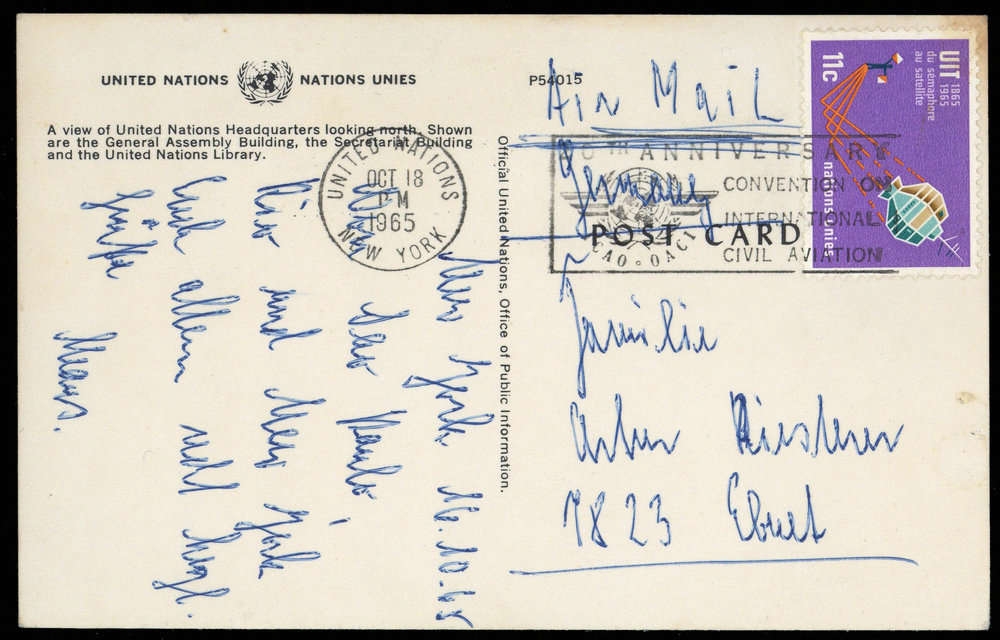 UNITED NATIONS NATIONS UNIES
A view of United Nations Headquarters looking north. Shown
are the General Assembly Building, the Secretariat Building
and the United Nations Library.
UNITED NATIONS
OCT 18
PM
1965
NEW YORK
New York 16.10.65
Sao Paulo,
Rio und New York
Euch allen
Grüße
Klaus.
Official United Nations, Office of Public Information.
P54015
Air Mail
Germany
POST CARD
Familie
7823
TH ANNIVERSARY
CONVENTION ON
INTERNATIONAL
CIVIL AVIATION
OACI
UIT 1865
1965
du sémaphore
au satellite
11c
nations unies